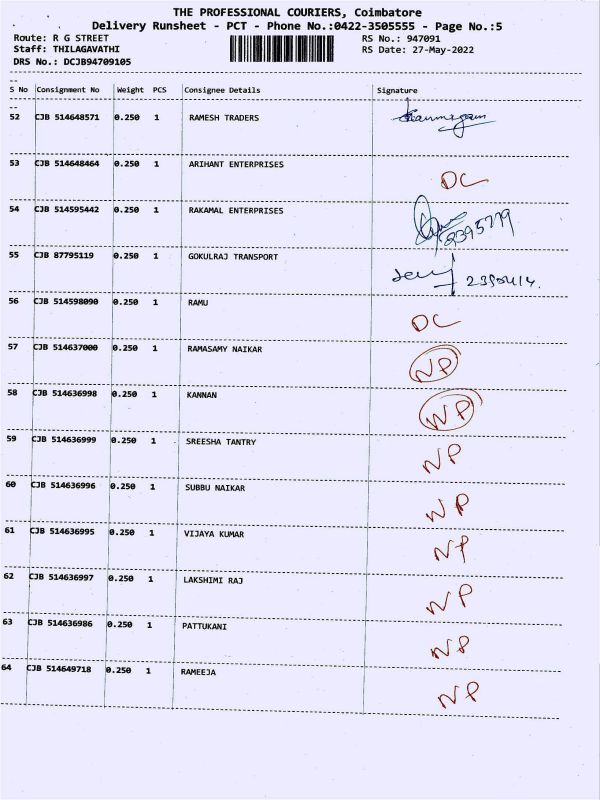 THE PROFESSIONAL COURIERS, Coimbatore
Delivery Runsheet - PCT - Phone No.:0422-3505555 - Page No.:5
Route: R G STREET RS No.: 947091
Staff: THILAGAVATHI RS Date: 27-May-2022
DRS No.: DCJB94709105
S No Consignment No Weight PCS Consignee Details Signature
52 CJB 514648571 0.250 1 RAMESH TRADERS
53 CJB 514648464 0.250 1 ARIHANT ENTERPRISES
DC
54 CJB 514595442 0.250 1 RAKAMAL ENTERPRISES
55 CJB 87795119 0.250 1 GOKULRAJ TRANSPORT
56 CJB 514598090 0.250 1 RAMU
DC
57 CJB 514637000 0.250 1 RAMASAMY NAIKAR
NP
58 CJB 514636998 0.250 1 KANNAN
NP
59 CJB 514636999 0.250 1 SREESHA TANTRY
NP
60 CJB 514636996 0.250 1 SUBBU NAIKAR
NP
61 CJB 514636995 0.250 1 VIJAYA KUMAR
NP
62 CJB 514636997 0.250 1 LAKSHIMI RAJ
NP
63 CJB 514636986 0.250 1 PATTUKANI
NP
64 CJB 514649718 0.250 1 RAMEEJA
NP